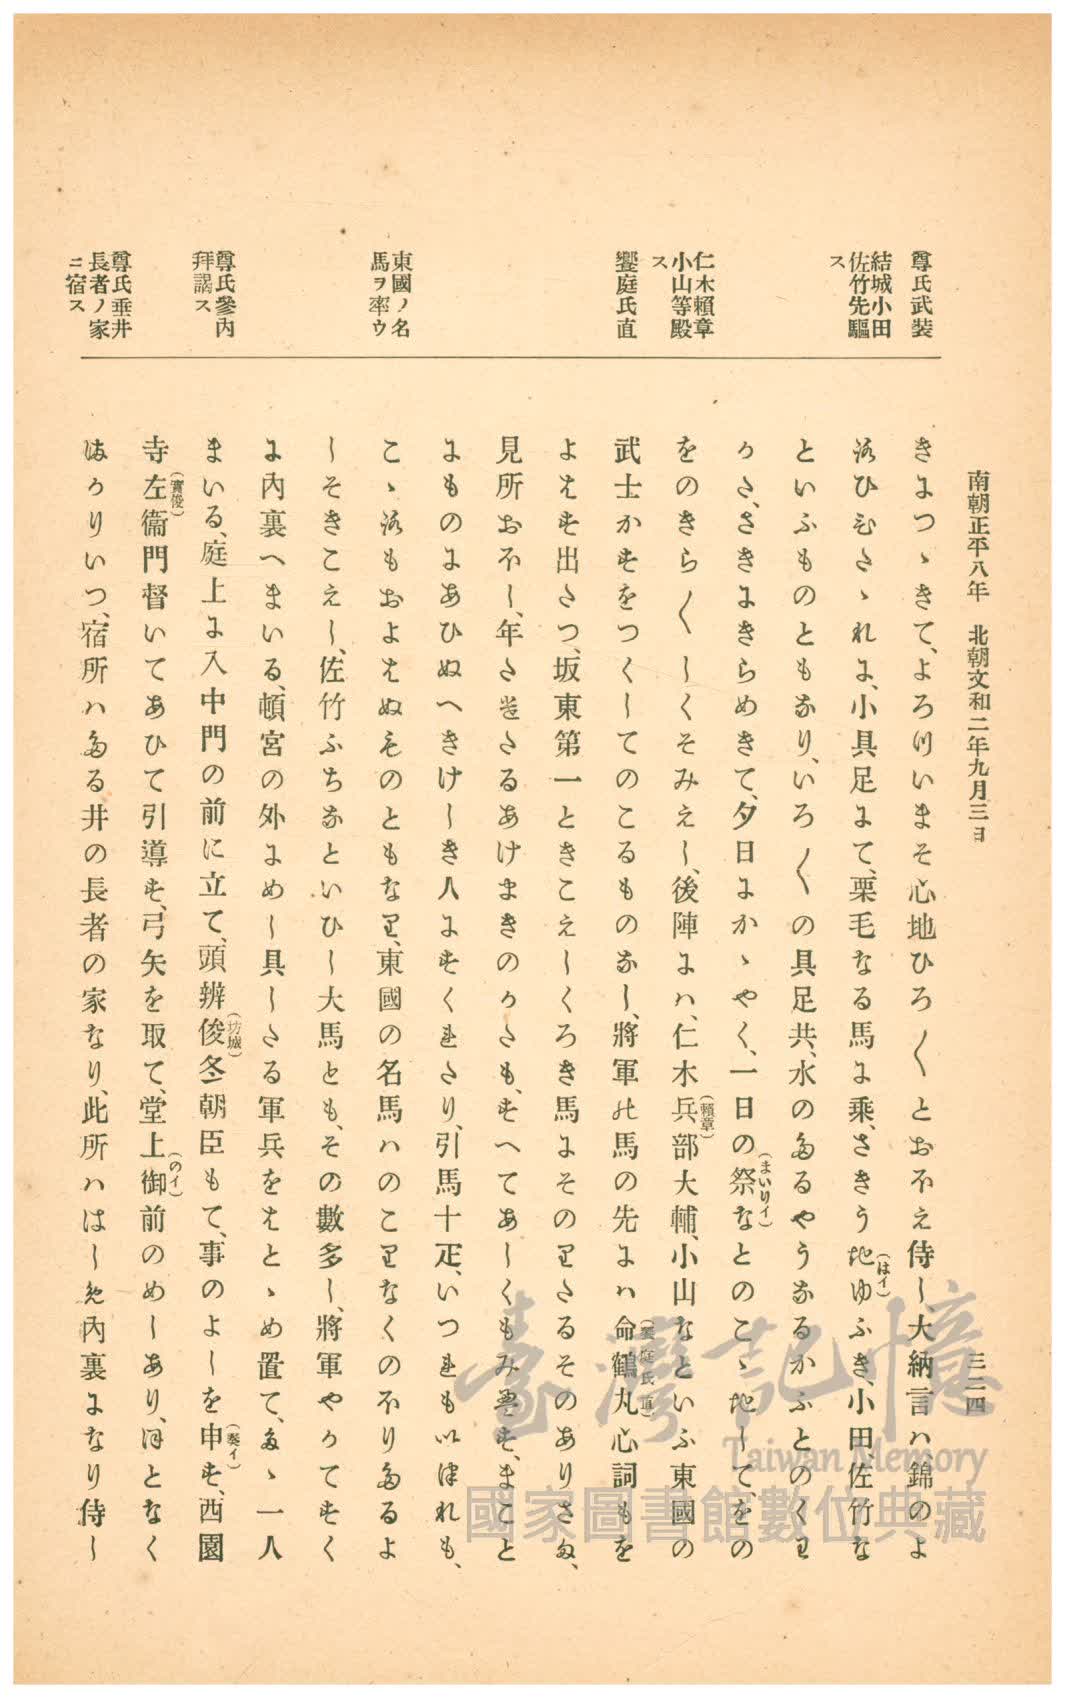 南朝正平八年　北朝文和二年九月三日　三二四
尊氏武装
結城小田
佐竹先驅
ス
仁木頼章
小山等殿
ス
饗庭氏直
東國ノ名
馬ヲ率ウ
尊氏參内
拜謁ス
尊氏垂井
長者ノ家
ニ宿ス
きにつゝきて、よろついまそ心地ひろ〱とおほえ侍し大納言ハ錦のよ
ろひひたゝれに、小具足にて、栗毛なる馬に乘、さきう(はイ)ちゆふき、小田、佐竹な
といふものともあり、いろ〱の具足共、水のたるやうなるかふとのくわ
かた、さきにきらめきて、夕日にかゝやく、一日の祭(まいりイ)なとのこゝちして、をの
をのきら〱しくそみえし、後陣にハ、仁木兵(頼章)部大輔、小山なといふ東國の
武士かすをつくしてのこるものなし、將軍の馬の先にハ命鶴丸(饗庭氏直)心詞もを
よはす出たつ、坂東第一ときこえしくろき馬にそのわたるそのありさま、
見所おほし、年たけたるあけまきのかたも、すへてあしくもみえす、まこと
にものにあひぬへきけしき人にすくれたり、引馬十疋、いつれもいつれも、
こゝろもおよはぬものともなり、東國の名馬ハのこりなくのほりたるよ
しそきこえし、佐竹ふちなといひし大馬とも、その數多し、將軍やかてすく
に内裏へまいる、頓宮の外にめし具したる軍兵をはとゝめ置て、たゝ一人
まいる、庭上に入中門の前に立て、頭辨俊(坊城)冬朝臣もて、事のよしを申(奏イ)す、西園
寺(實俊)左衞門督いてあひて引導す、弓矢を取て、堂上御(のイ)前のめしあり、ほとなく
はかりいつ、宿所ハたる井の長者の家なり、此所ハはしめ内裏になり侍し